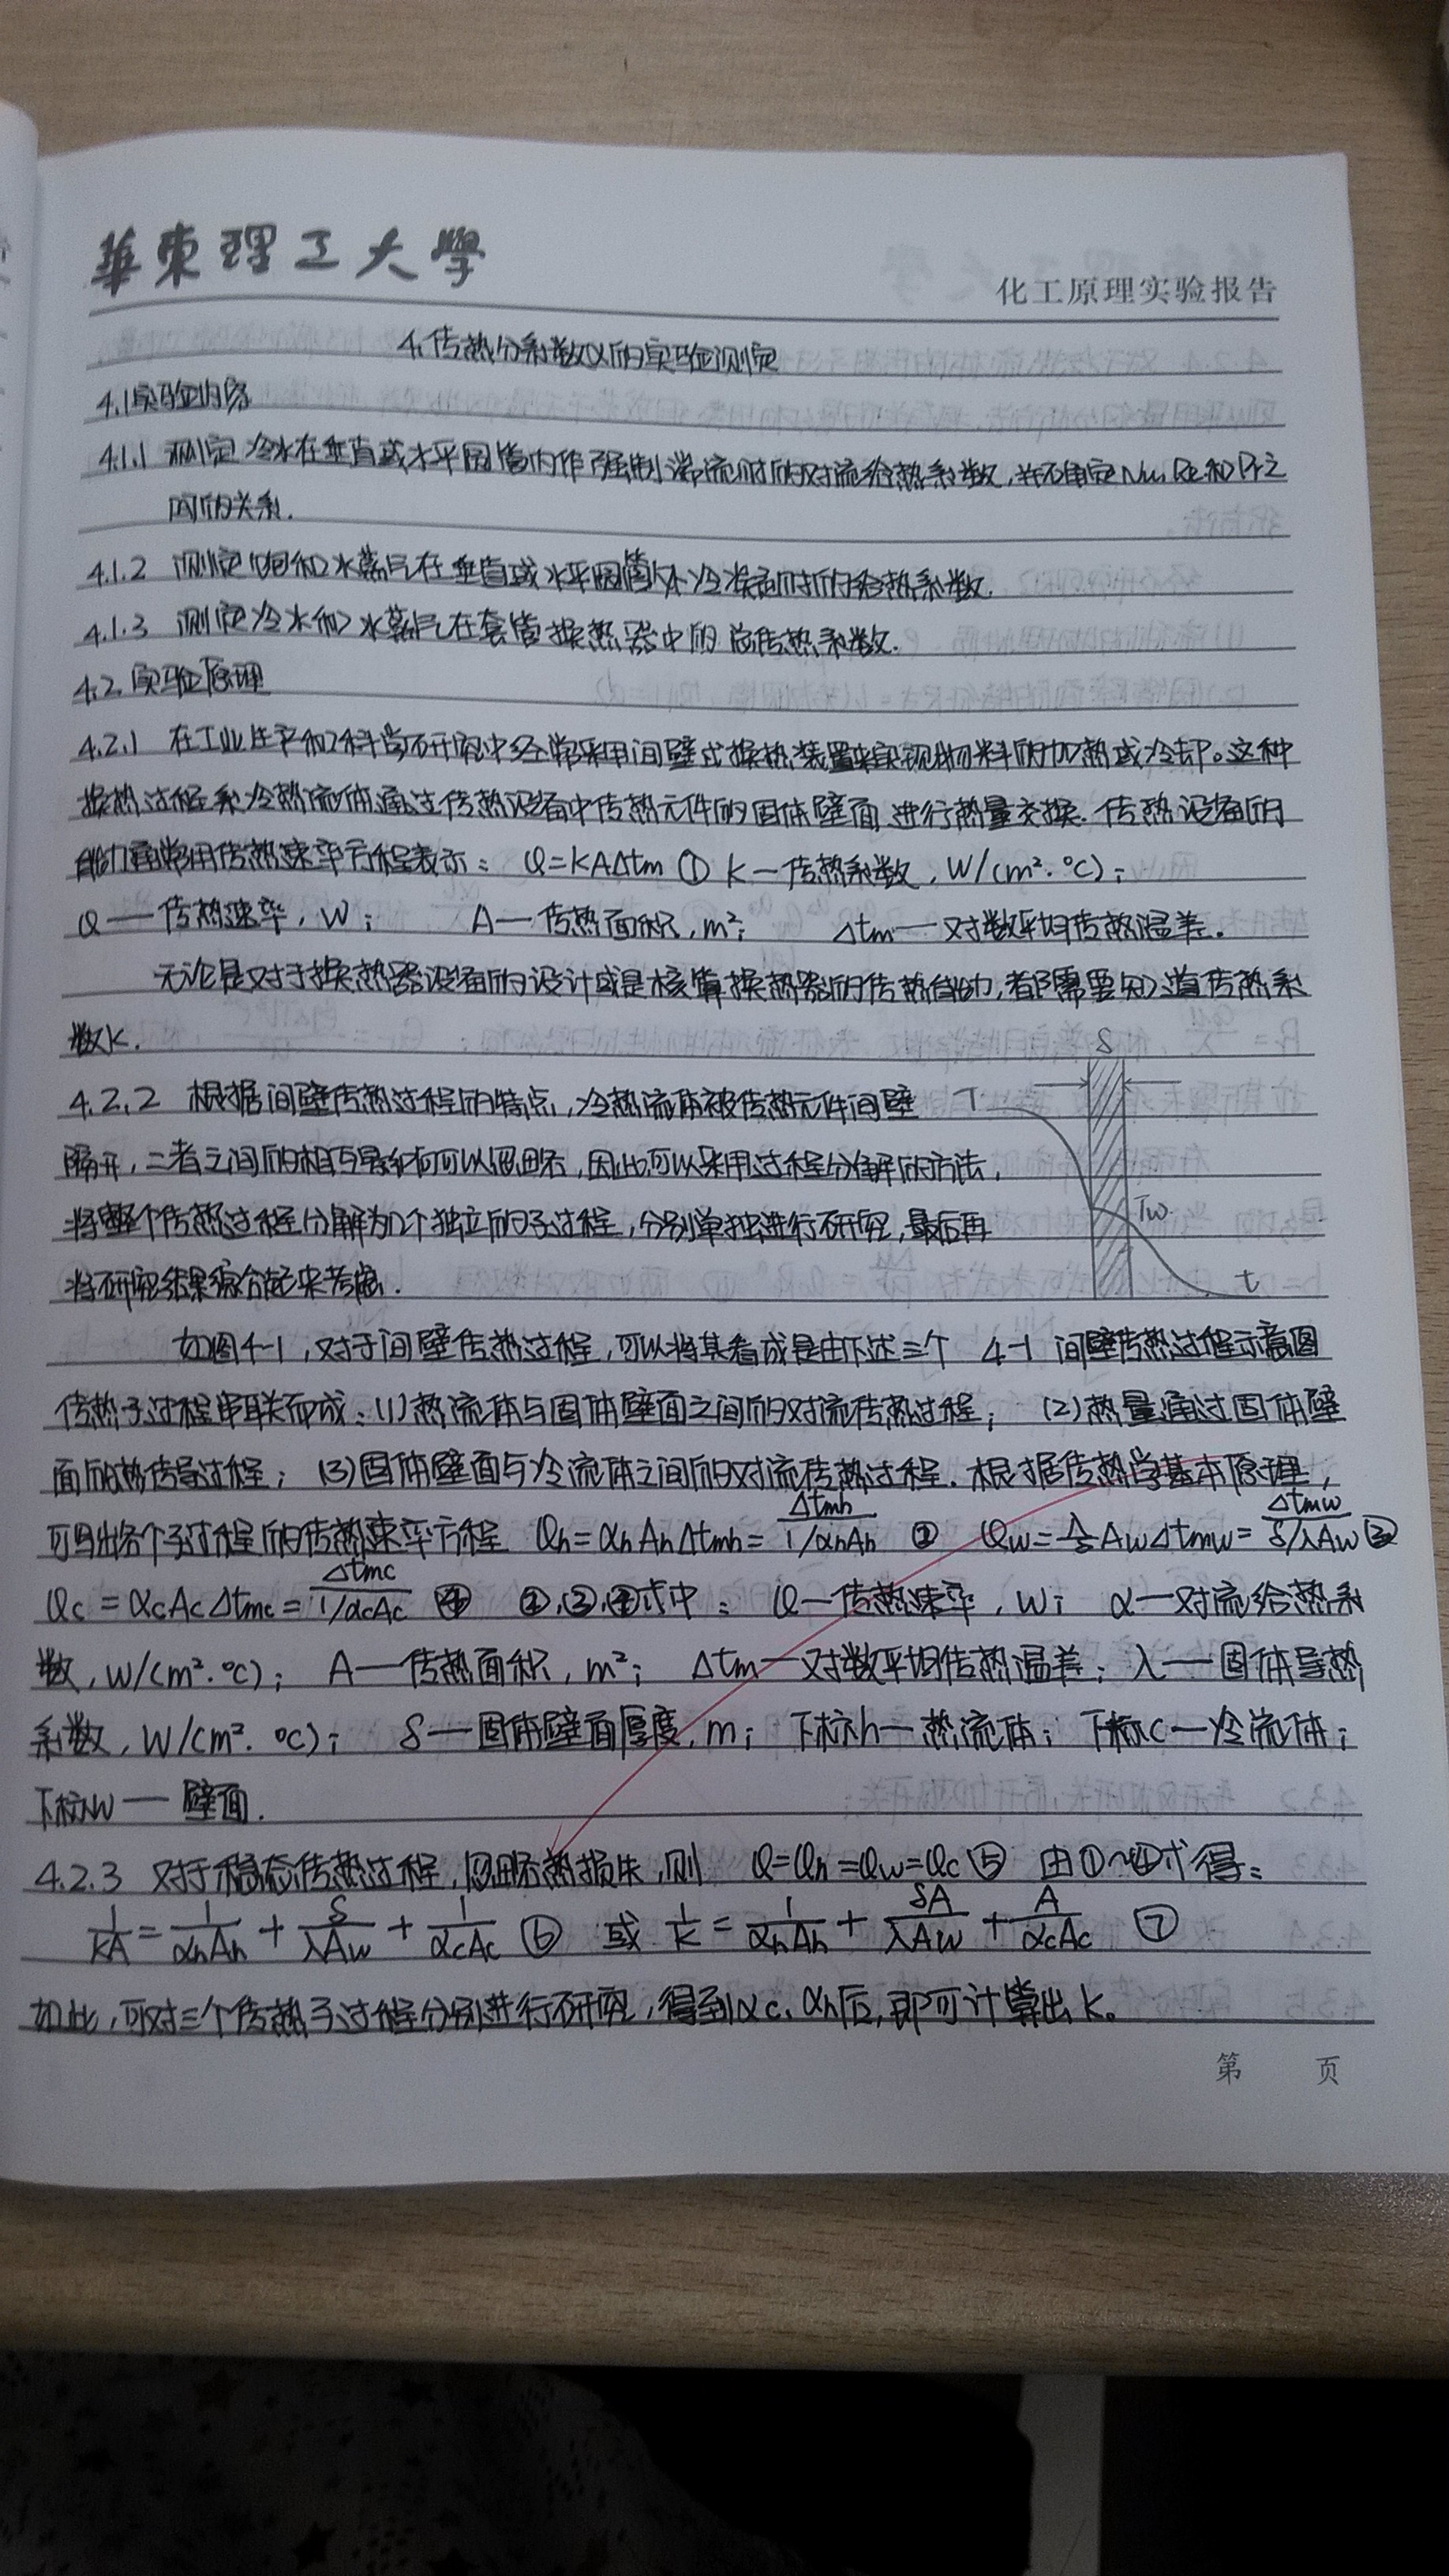 華東理工大學
化工原理实验报告
4.传热分系数α的实验测定
4.1实验内容
4.1.1 测定冷水在垂直或水平圆管内作强制湍流时的对流给热系数,并确定Nu、Re和Pr之
间的关系.
4.1.2 测定饱和水蒸气在垂直或水平圆管外冷凝时的给热系数.
4.1.3 测定冷水和水蒸气在套管换热器中的总传热系数.
4.2 实验原理
4.2.1 在工业生产和科学研究中经常采用间壁式换热装置来实现物料的加热或冷却。这种
换热过程系冷热流体通过传热设备中传热元件的固体壁面进行热量交换.传热设备的
能力通常用传热速率方程表示: Q=KAΔtm ① K—传热系数,W/(m²·℃);
Q—传热速率,W; A—传热面积,m²; Δtm—对数平均传热温差.
无论是对于换热器设备的设计或是核算换热器的传热能力,都需要知道传热系
数K.
δ
4.2.2 根据间壁传热过程的特点,冷热流体被传热元件间壁
T
隔开,二者之间的相互影响可以忽略,因此可以采用过程分解的方法,
将整个传热过程分解为几个独立的子过程,分别单独进行研究,最后再
Tw
将研究结果综合起来考虑.
t
如图4-1,对于间壁传热过程,可以将其看成是由下述三个 4-1 间壁传热过程示意图
传热子过程串联而成:(1)热流体与固体壁面之间的对流传热过程; (2)热量通过固体壁
面的热传导过程; (3)固体壁面与冷流体之间的对流传热过程.根据传热学基本原理,
可写出各个子过程的传热速率方程 Qh=αhAhΔtmh=Δtmh/(1/αhAh) ② Qw=λ/δ AwΔtmw=Δtmw/(δ/λAw) ③
Qc=αcAcΔtmc=Δtmc/(1/αcAc) ④ ②,③,④式中: Q—传热速率,W; α—对流给热系
数,W/(m²·℃); A—传热面积,m²; Δtm—对数平均传热温差; λ—固体导热
系数,W/(m²·℃); δ—固体壁面厚度,m; 下标h—热流体; 下标c—冷流体;
下标w—壁面.
4.2.3 对于稳态传热过程,忽略热损失,则 Q=Qh=Qw=Qc ⑤ 由①~④式得:
1/KA=1/αhAh+δ/λAw+1/αcAc ⑥ 或 1/K=1/αhAh+δA/λAw+A/αcAc ⑦
如此,可对三个传热子过程分别进行研究,得到αc、αh后,即可计算出K。
第 页